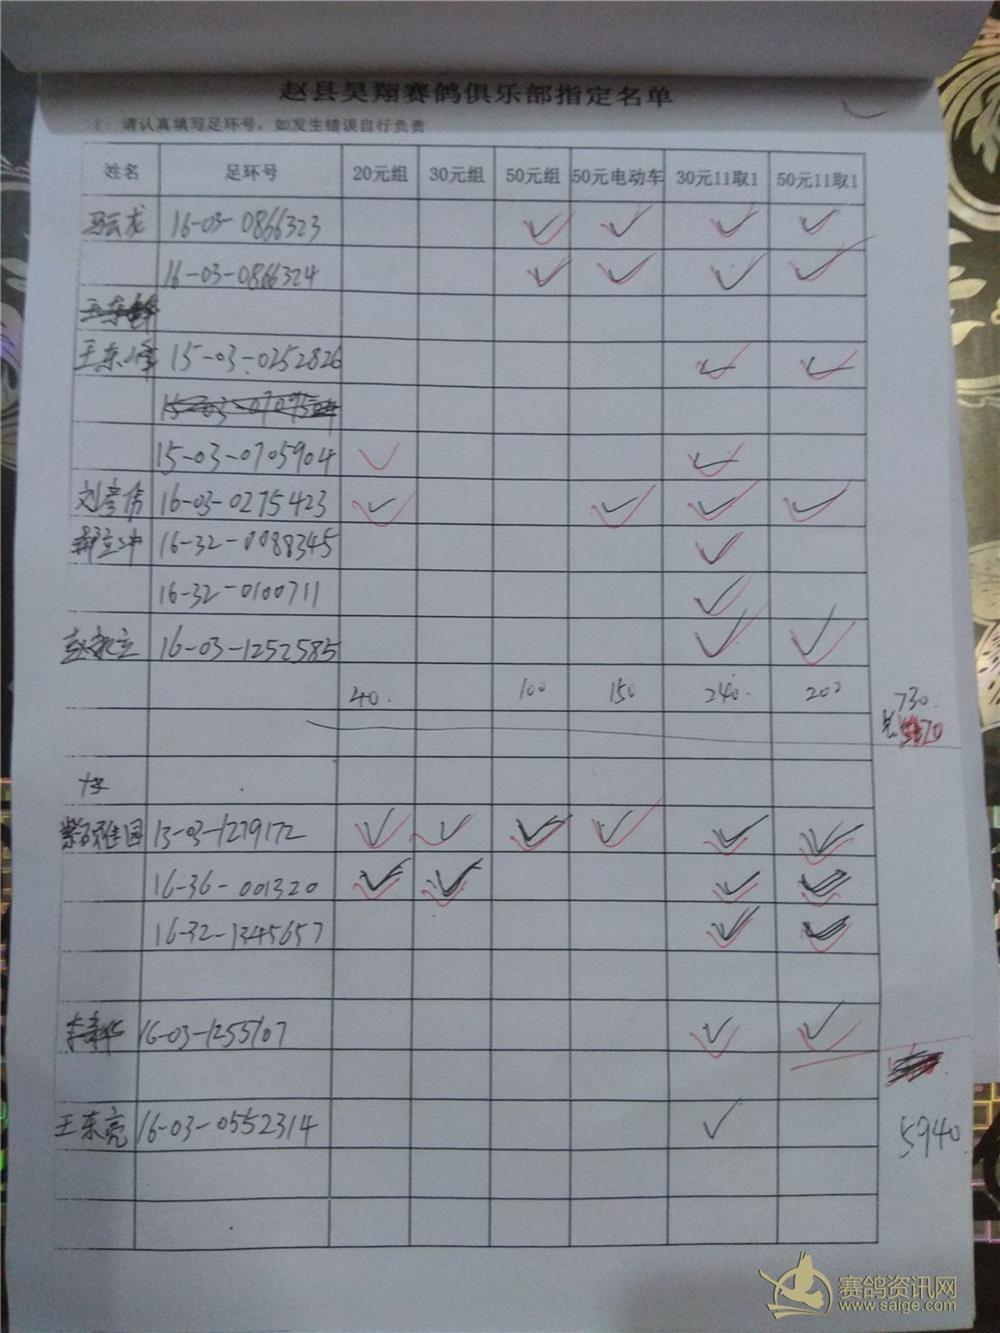 赵县昊翔赛鸽俱乐部指定名单
注：请认真填写足环号，如发生错误自行负责
姓名 足环号 20元组 30元组 50元组 50元电动车 30元11取1 50元11取1
马云龙 16-03-0866323 ✓ ✓ ✓ ✓
16-03-0866324 ✓ ✓ ✓ ✓
王东峰 15-03-0252826 ✓ ✓
15-03-0705904 ✓ ✓
刘彦伟 16-03-0275423 ✓ ✓ ✓ ✓
16-32-0088345 ✓
16-32-0100711 ✓
16-03-1252585 ✓ ✓
40. 100 150 240. 200 730.
13-03-1279172 ✓ ✓ ✓ ✓ ✓ ✓
16-36-001320 ✓ ✓ ✓ ✓
16-32-1345657 ✓ ✓
16-03-1255107 ✓ ✓
王东亮 16-03-0552314 ✓
5940.
赛鸽资讯网
www.saige.com